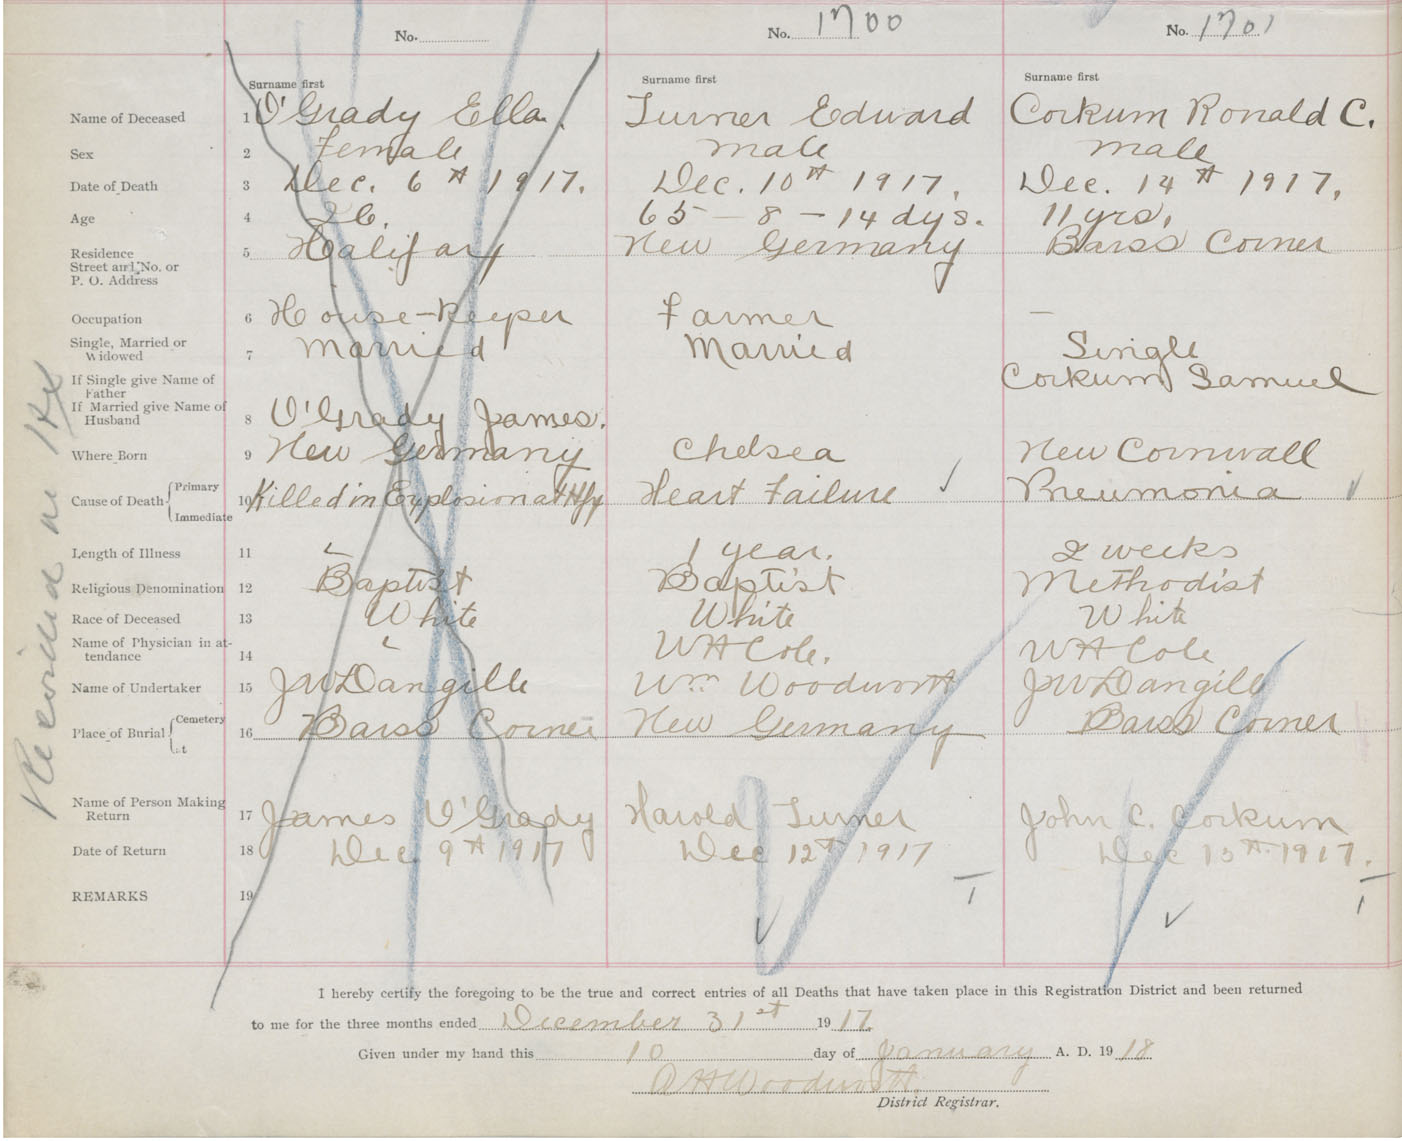 No.
No. 1700
No. 1701
Surname first
Surname first
Surname first
Name of Deceased 1 O'Grady Ella. Turner Edward Corkum Ronald C.
Sex 2 Female Male Male
Date of Death 3 Dec. 6th 1917. Dec. 10th 1917. Dec. 14th 1917.
Age 4 26. 65 - 8 - 14 dys. 11 yrs.
Residence 5 Halifax New Germany Barss Corner
Street and No. or
P. O. Address
Occupation 6 House-Keeper Farmer —
Single, Married or
Widowed 7 Married Married Single
If Single give Name of
Father Corkum Samuel
If Married give Name of
Husband 8 O'Grady James.
Where Born 9 New Germany Chelsea New Cornwall
Cause of Death Primary
Immediate 10 Killed in Explosion at Hfx Heart Failure Pneumonia
Length of Illness 11 1 year. 2 weeks
Religious Denomination 12 Baptist Baptist Methodist
Race of Deceased 13 White White White
Name of Physician in at-
tendance 14 W H Cole. W H Cole
Name of Undertaker 15 J W DLangille Wm Woodworth J W DLangille
Place of Burial Cemetery
at 16 Barss Corner New Germany Barss Corner
Name of Person Making
Return 17 James O'Grady Harold Turner John C. Corkum
Date of Return 18 Dec 9th 1917 Dec 12th 1917 Dec 15th 1917.
REMARKS 19
Recorded in Hfx
I hereby certify the foregoing to be the true and correct entries of all Deaths that have taken place in this Registration District and been returned
to me for the three months ended December 31st 1917
Given under my hand this 10 day of January A. D. 1918
A H Woodworth
District Registrar.